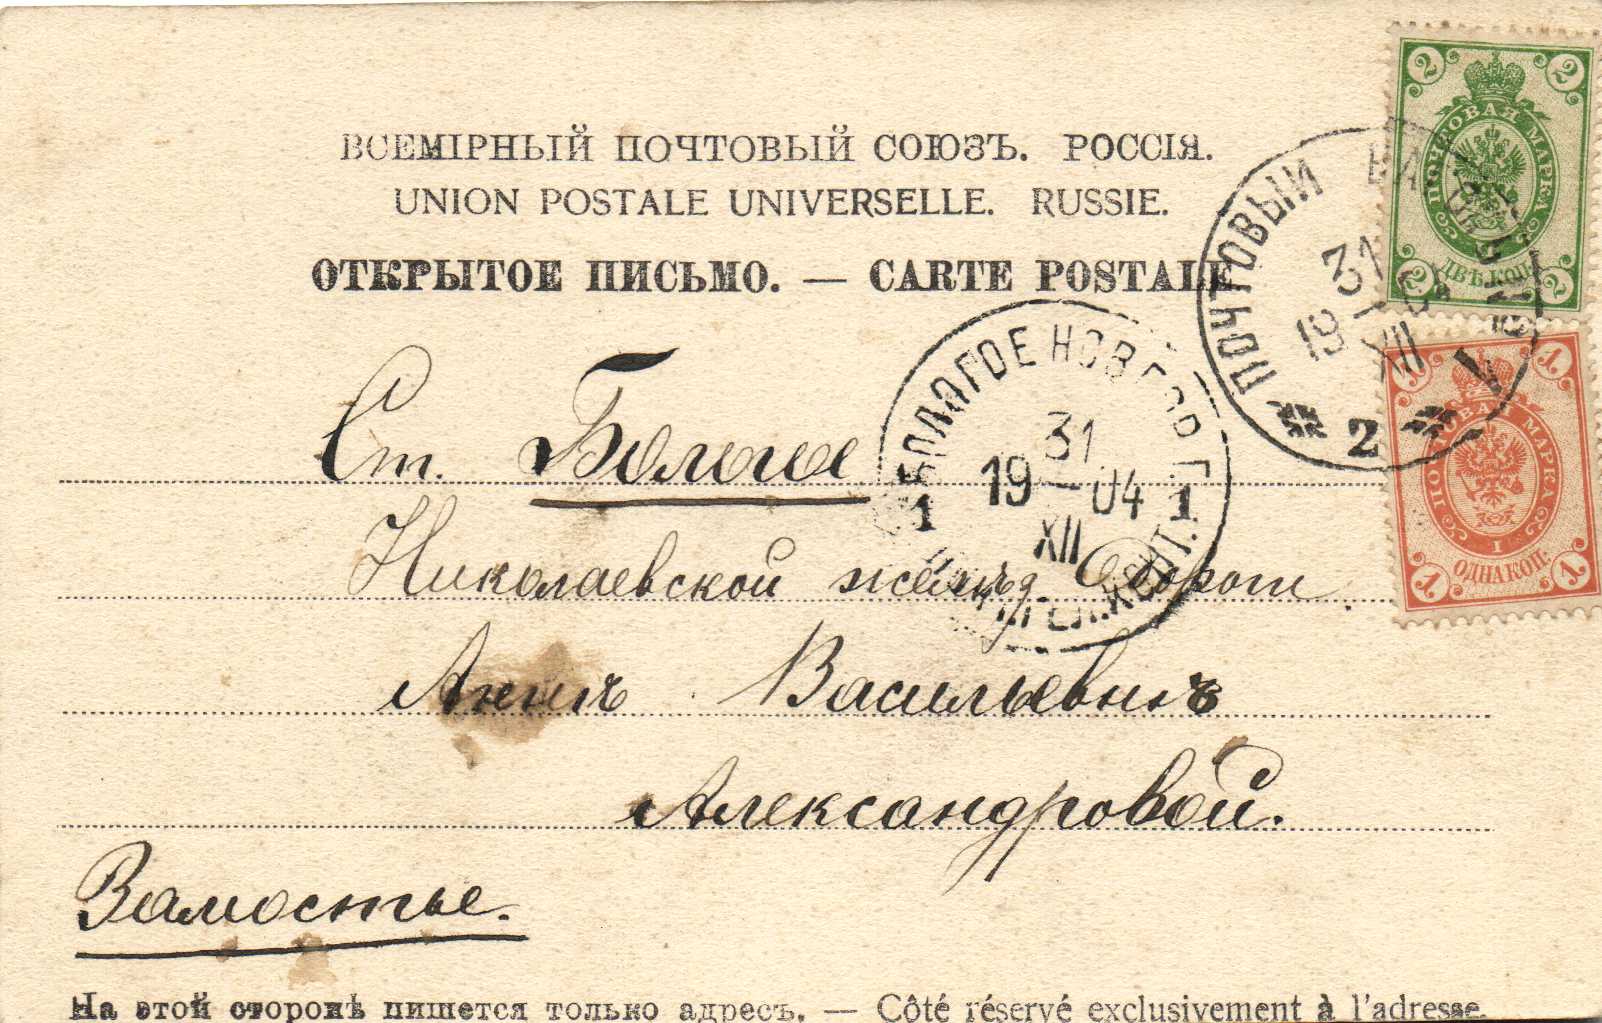 ВСЕМІРНЫЙ ПОЧТОВЫЙ СОЮЗЪ. РОССІЯ.
UNION POSTALE UNIVERSELLE. RUSSIE.
ОТКРЫТОЕ ПИСЬМО. — CARTE POSTALE
2 2
ПОЧТОВАЯ МАРКА
ДВѢ КОП.
2 2
ПОЧТОВЫЙ ВАГОНЪ
31
19 — 04
XII
2
1 1
ПОЧТОВАЯ МАРКА
1
ОДНА КОП.
1 1
БОЛОГОЕ НОВГОР. Г.
31
19 — 04
XII
1 1
Ст. Бологое
Николаевской желѣзн. Дорог
Аннѣ Васильевнѣ
Александровой.
Замостье.
На этой сторонѣ пишется только адресъ. — Côté réservé exclusivement à l'adresse.